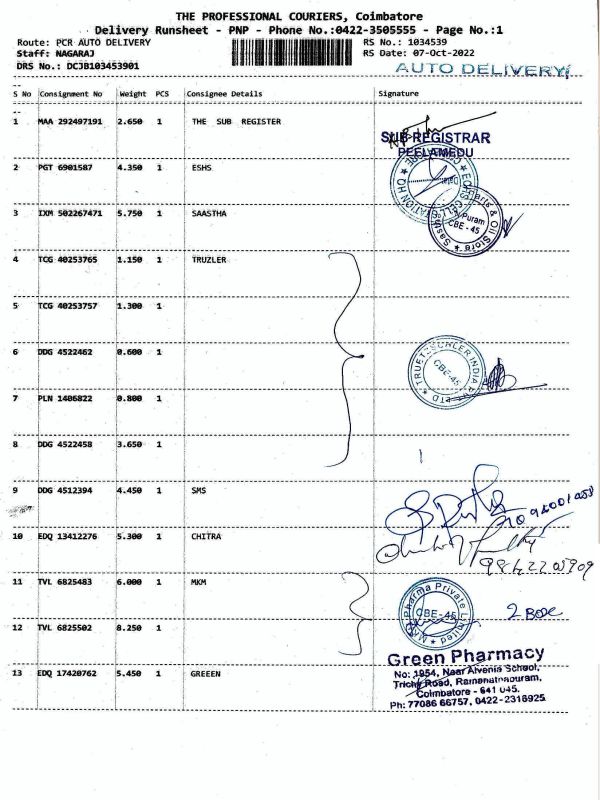 THE PROFESSIONAL COURIERS, Coimbatore
Delivery Runsheet - PNP - Phone No.:0422-3505555 - Page No.:1
Route: PCR AUTO DELIVERY
RS No.: 1034539
Staff: NAGARAJ
RS Date: 07-Oct-2022
DRS No.: DCJB103453901
AUTO DELIVERY
S No Consignment No Weight PCS Consignee Details Signature
1 MAA 292497191 2.650 1 THE SUB REGISTER
SUB REGISTRAR
PEELAMEDU
2 PGT 6901587 4.350 1 ESHS
3 IXM 502267471 5.750 1 SAASTHA
Puram
CBE - 45
4 TCG 40253765 1.150 1 TRUZLER
5 TCG 40253757 1.300 1
6 DDG 4522462 0.600 1
CBE-45
7 PLN 1406822 0.800 1
8 DDG 4522458 3.650 1
9 DDG 4512394 4.450 1 SMS
10 EDQ 13412276 5.300 1 CHITRA
11 TVL 6825483 6.000 1 MKM
MKM Pharma Private Limited
CBE-45
2 Box
12 TVL 6825502 8.250 1
13 EDQ 17420762 5.450 1 GREEEN
Green Pharmacy
No: 1954, Near Alvernia School,
Trichy Road, Ramanathapuram,
Coimbatore - 641 045.
Ph: 77086 66757, 0422-2316925